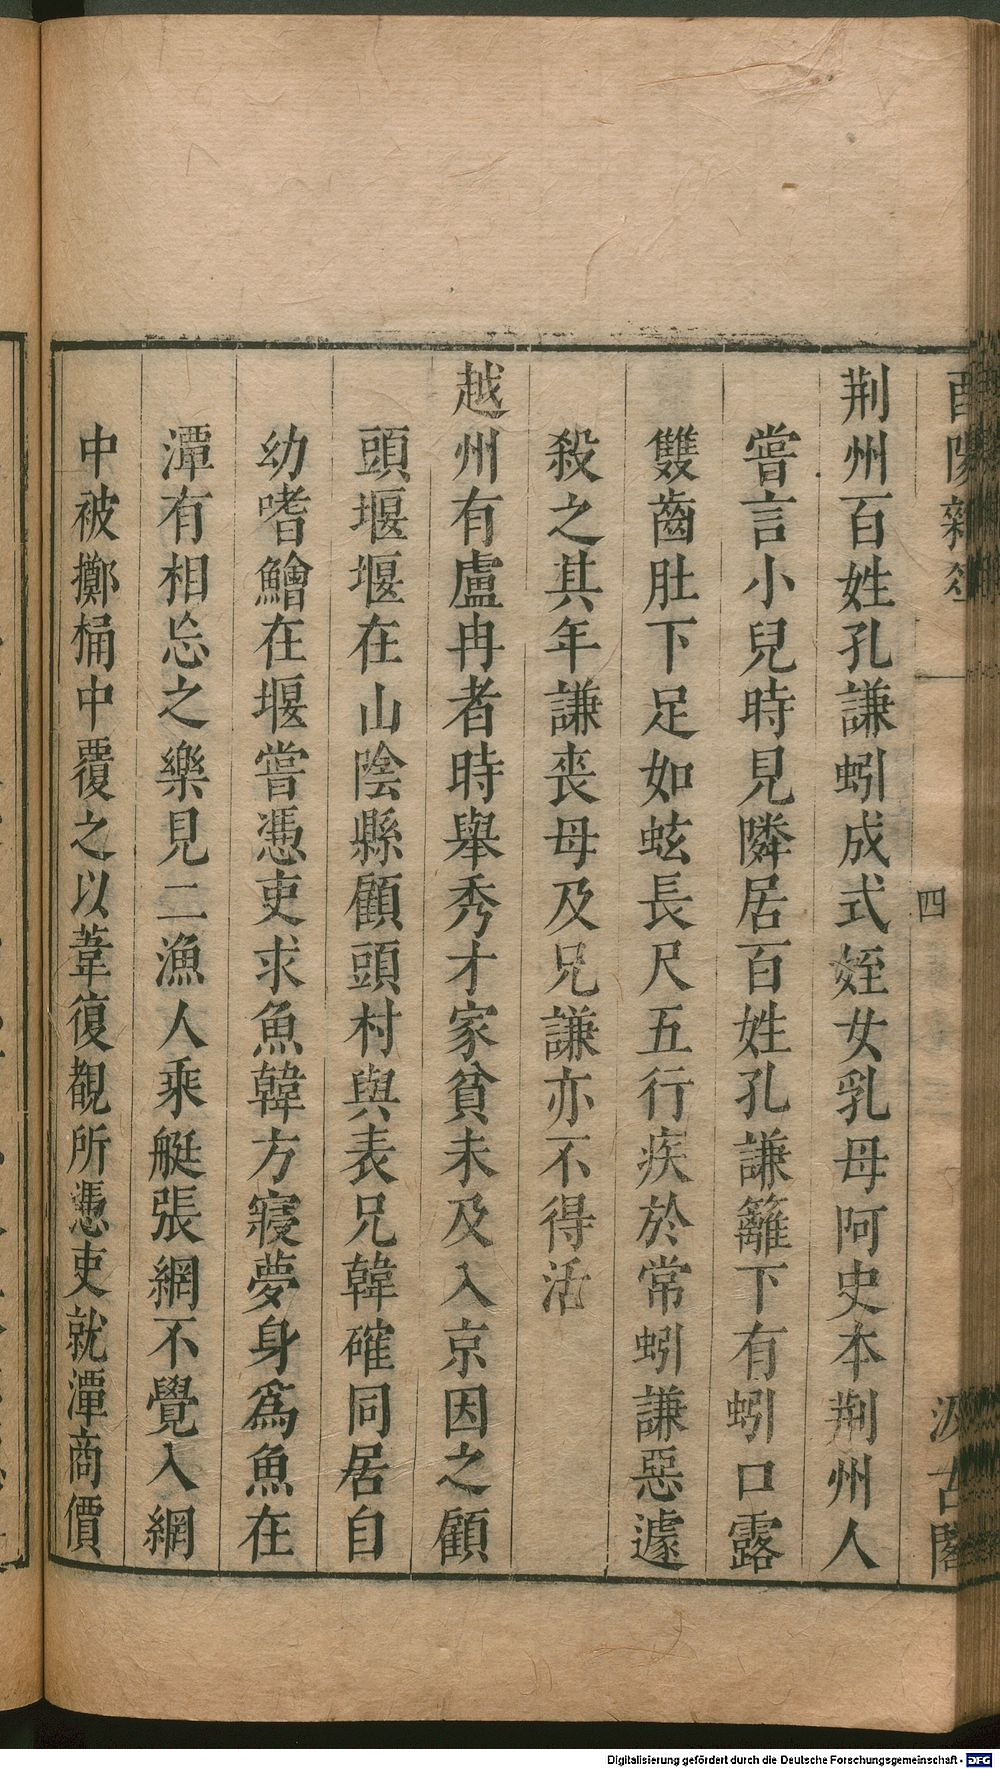 酉陽雜俎
四
汲古閣
荆州百姓孔謙蚓成式姪女乳母阿史本荆州人
嘗言小兒時見隣居百姓孔謙籬下有蚓口露
雙齒肚下足如蚿長尺五行疾於常蚓謙惡遽
殺之其年謙喪母及兄謙亦不得活
越州有盧冉者時舉秀才家貧未及入京因之顧
頭堰堰在山陰縣顧頭村與表兄韓確同居自
幼嗜鱠在堰嘗憑吏求魚韓方寢夢身爲魚在
潭有相忘之樂見二漁人乘艇張網不覺入網
中被擲桶中覆之以葦復覩所憑吏就潭商價
Digitalisierung gefördert durch die Deutsche Forschungsgemeinschaft - DFG